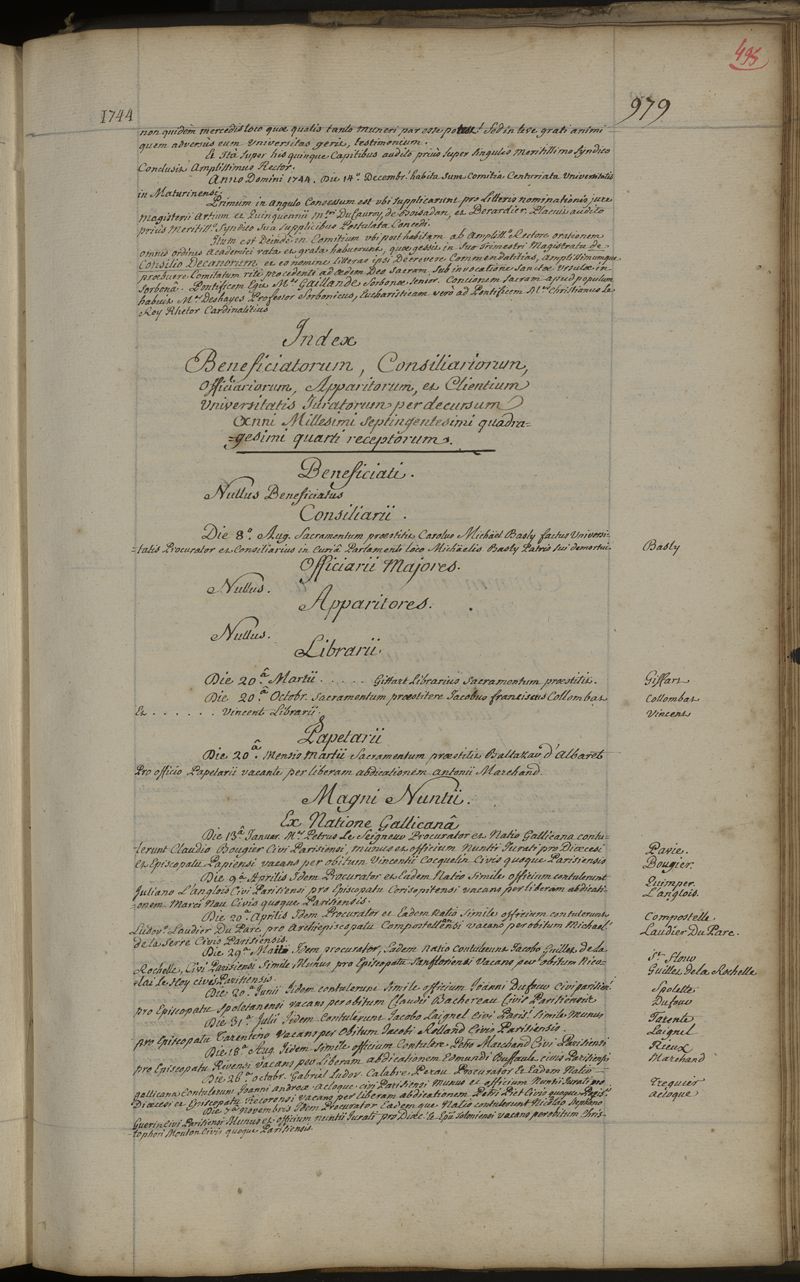 495
1744
979
non quidem mercedis loco quæ qualis tanto muneri par esse potest! Sed in leve grati animi
quem adversus eum Universitas gerit, testimonium.
Et Ita Super his quinque Capitibus audito prius super singulis meritissimo Syndico
Conclusit Amplissimus Rector.
Anno Domini 1744. Die 14ª Decembr. habita sunt Comitia Centuriata Universitatis
in Maturinensi.
Primum in angulo Concessum est ubi Supplicarunt pro Litteris nominationis jure
magisterii Artium et Quinquennii M.tri Du Cauroy, de Boisadan, et Berardier. Placuit audito
prius meritiss.º Syndico Sua Supplicibus Postulata Concedi.
Itum est Deinde in Comitium ubi post habitam ab Ampliss.º Rectore orationem
omnis ordines Academici rata et grata habuerunt, quæ gessit in Suo Trimestri Magistratu de
Consilio Decanorum et eo nomine litteræ ipsi Decrevere Commendatitias, amplissimumque
præbuere Comitatum rite procedenti ad ædem Deo Sacram Sub invocatione Sanctæ Ursulæ in
Sorbonâ. Pontificem Egit M.tr Gaillande Sorbonæ Senior. Concionem Sacram apud populum
habuit M.tr Deshayes Professor Sorbonicus, Eucharisticam vero ad Pontificem M.tr Christianus Le
Roy Rhetor Cardinalitius
Index
Beneficiatorum, Consiliariorum,
Officiariorum, Apparitorum, et Clientium
Universitatis Iuratorum per decursum
Anni Millesimi Septingentesimi quadra-
-gesimi quarti receptorum.
Beneficiati.
Nullus Beneficiatus
Consiliarii.
Die 8ª Aug. Sacramentum præstitit Carolus Michäel Basly factus Universi-
-tatis Procurator et Consiliarius in Curiâ Parlamenti loco Michäelis Basly Patris Sui demortui.
Basly
Officiarii Majores.
Nullus.
Apparitores.
Nullus.
Librarii.
Die 20ª Martii . . . . . Giffart Librarius Sacramentum præstitit.
Giffart
Die 20ª Octobr. Sacramentum præstitere Jacobus franciscus Collombat
Collombat
Et . . . . . . Vincent Librarii.
Vincent
Papetarii
Die 20ª Mensis Martii Sacramentum præstitit Baltazar d'Albaret
Pro officio Papetarii vacante per liberam abdicationem antonii Marchand.
Magni Nuntii.
Ex Natione Gallicanâ
Die 13ª Januar. M.tr Petrus Le Seigneur Procurator et Natio Gallicana contu-
-lerunt Claudio Bougier Civi Parisiensi, munus et officium Nuntii Jurati pro Diœcesi
et Episcopatu Papiensi vacans per obitum Vincentii Cocquelin Civis quoque Parisiensis
Pavie.
Bougier.
Die 9ª Aprilis Idem Procurator et Eadem Natio Simile officium contulerunt
Juliano L'anglois Civi Parisiensi pro Episcopatu Corisopitensi vacans per liberam abdicati-
-onem Marci Nau Civis quoque Parisiensis.
Quimper
L'anglois.
Die 20ª Aprilis Idem Procurator et Eadem Natio Simile officium contulerunt
Ludov.º Laudier Du Parc pro Archiepiscopatu Compostellensi vacans per obitum Michael.
de la Serre Civis Parisiensis.
Compostelle
Laudier Du Parc.
Die 29ª Maii Idem procurator, Eadem Natio contulerunt Jacobo Guillet de la
Rochelle, Civi Parisiensi Simile Munus pro Episcopatu Sanfloriensi Vacans per obitum Nico-
-lai Le Roy civis Parisiensis.
St. Flour
Guillet De la Rochelle
Die 20ª Junii Iidem contulerunt Simile officium Joanni Dufour Civi parisien.
pro Episcopatu Spoletanensi vacans per obitum Claudii Bachereau Civis Parisiensis
Spolette
Dufour
Die 31ª Julii Iidem Contulerunt Jacobo Laignel Civi Paris.i Simile Munus
pro Episcopatu Tarentino Vacans per Obitum Jacobi Rolland Civis Parisiensis.
Tarente
Laignel
Die 18ª Aug. Iidem Simile officium Contulere Petro Marchand Civi Parisiensi
pro Episcopatu Rivensi vacans per Liberam abdicationem Edmundi Buffault civis Parisiensis
Rieux
Marchand
Die 26ª octobr. Gabriel Ludov. Calabre Perau Procurator et Eadem Natio
gallicana contulerunt Joanni Andreæ Acloque civi Parisiensi munus et officium Nuntii Jurati pro
Diœcesi et Episcopatu Trecorensi vacans per liberam abdicationem Petri Piet Civis quoque Paris.
Treguier
acloque
Die 7ª Novembris Idem Procurator Eademque Natio contulerunt Nicolao Stephano
Guerin Civi Parisiensi Munus et officium nuntii Jurati pro Diœc. et Epū Soloniensi vacans per obitum Chris-
-tophori Mouton Civis quoque Parisiensis.